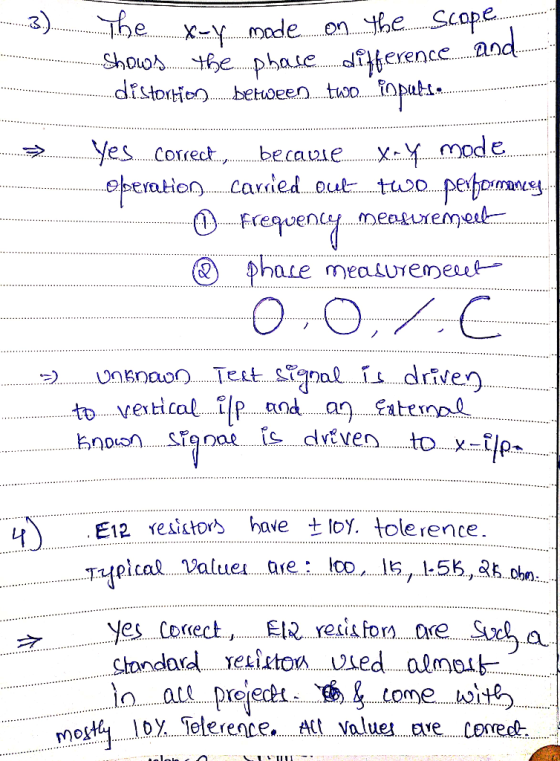 3) The x-y mode on the Scope
Shows the phase difference and
distortion between two inputs.
⇒ Yes correct, because x-y mode
operation carried out two performances
① Frequency measurement
② phase measurement
O, O, /, C
⇒ unknown Test signal is driven
to vertical i/p and an External
known signal is driven to x-i/p.
4) E12 resistors have ±10%. tolerence.
Typical Values are: 100, 1K, 1.5K, 2K ohm.
⇒ Yes Correct, E12 resistors are Such a
standard resistors used almost
in all projects. & come with
mostly 10% Tolerence. All values are correct.